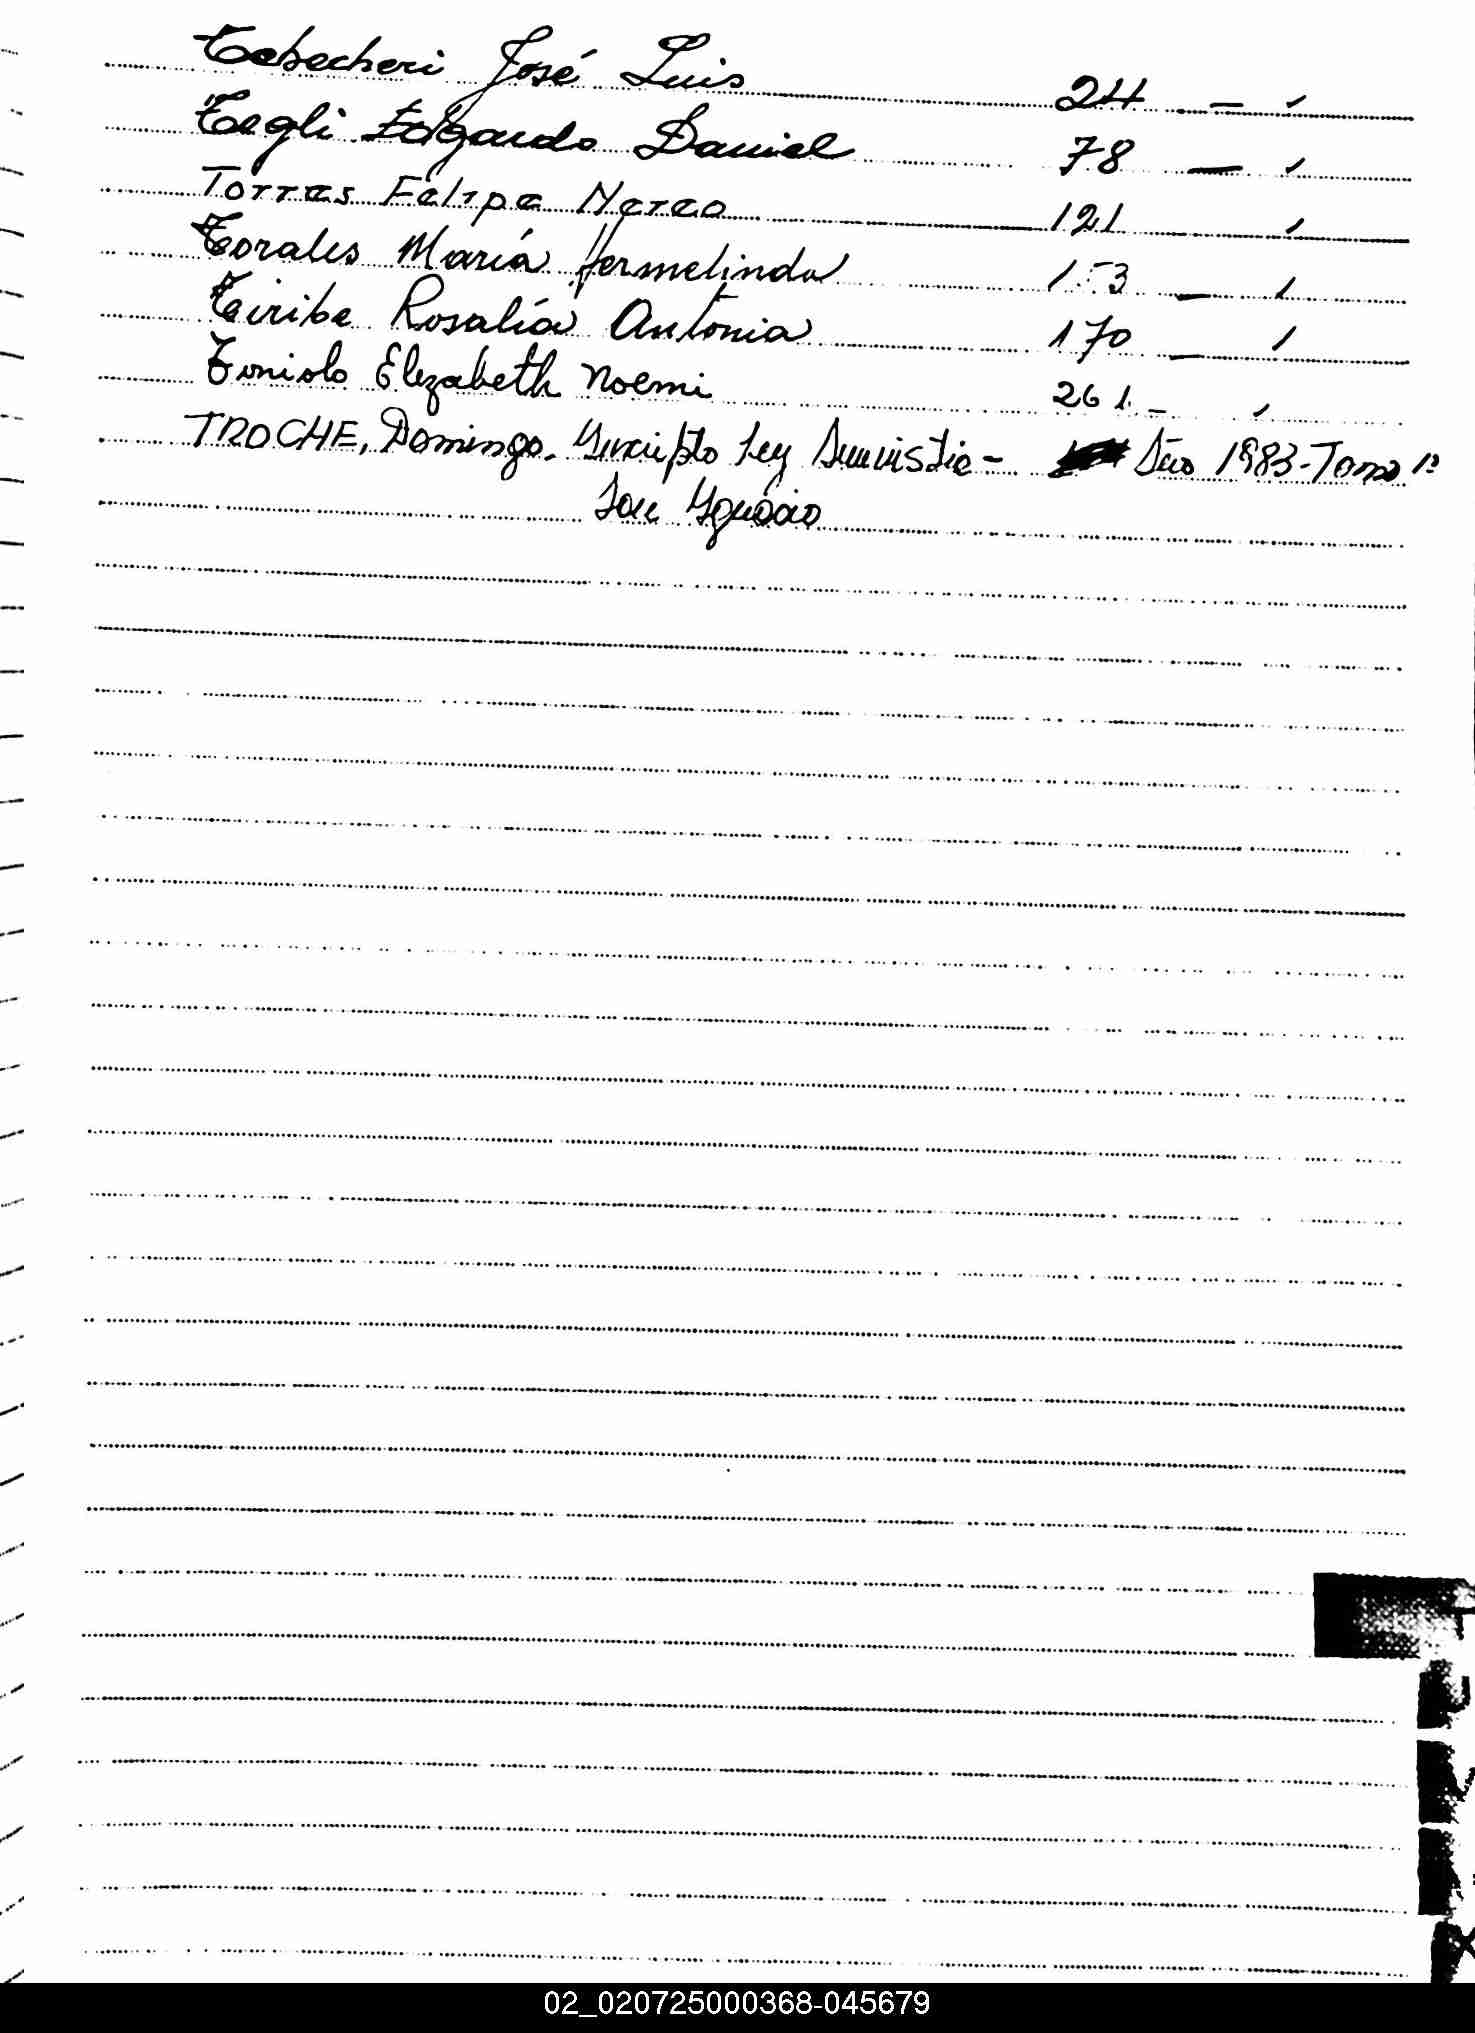 Tebecheri José Luis 24 — ,
Tegli Edgardo Daniel 78 — ,
Torres Felipe Marco 121 ,
Torales María Hermelinda 153 — ,
Tiribe Rosalía Antonia 170 — ,
Toniolo Elizabeth Noemi 261 – ,
TROCHE, Domingo. Inscripto Ley Amnistia – Año 1983-Tomo 1º
José Ignacio
02_020725000368-045679